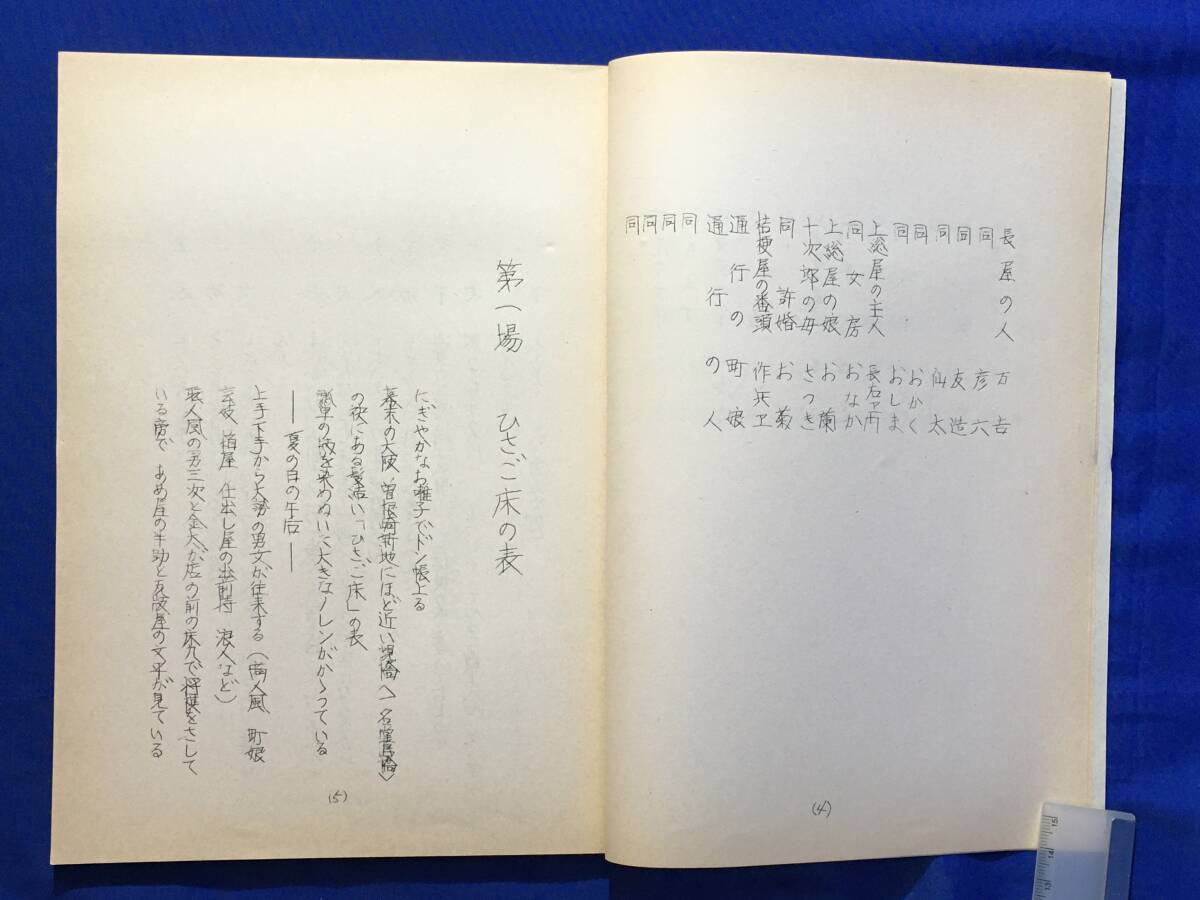 長屋の人 万吉
同 彦六
同 友造
同 仙太
同 おかく
同 おしま
上総屋の主人 長右ヱ門
同女房 おなか
上総屋の娘 お蘭
十次郎の母 さつき
同 許婚 お菊
桔梗屋の番頭 作兵ヱ
通行の町娘
通行の人
同
同
同
同
(4)
第一場 ひさご床の表
にぎやかなお囃子でドン帳上る
幕末の大阪、曽根崎新地にほど近い
の袂にある髪結い「ひさご床」の表
瓢箪の
を染めぬいた大きなノレンがかゝっている
――夏の日の午后――
上手下手から大勢の男女が往来する(商人風 町娘
芸妓 箱屋 仕出し屋の出前持 浪人など)
職人風の男三次と金太が店の前の床几で将棋をさして
いる傍で あめ屋の半助と瓦版屋の文平が見ている
(5)
15
14
13